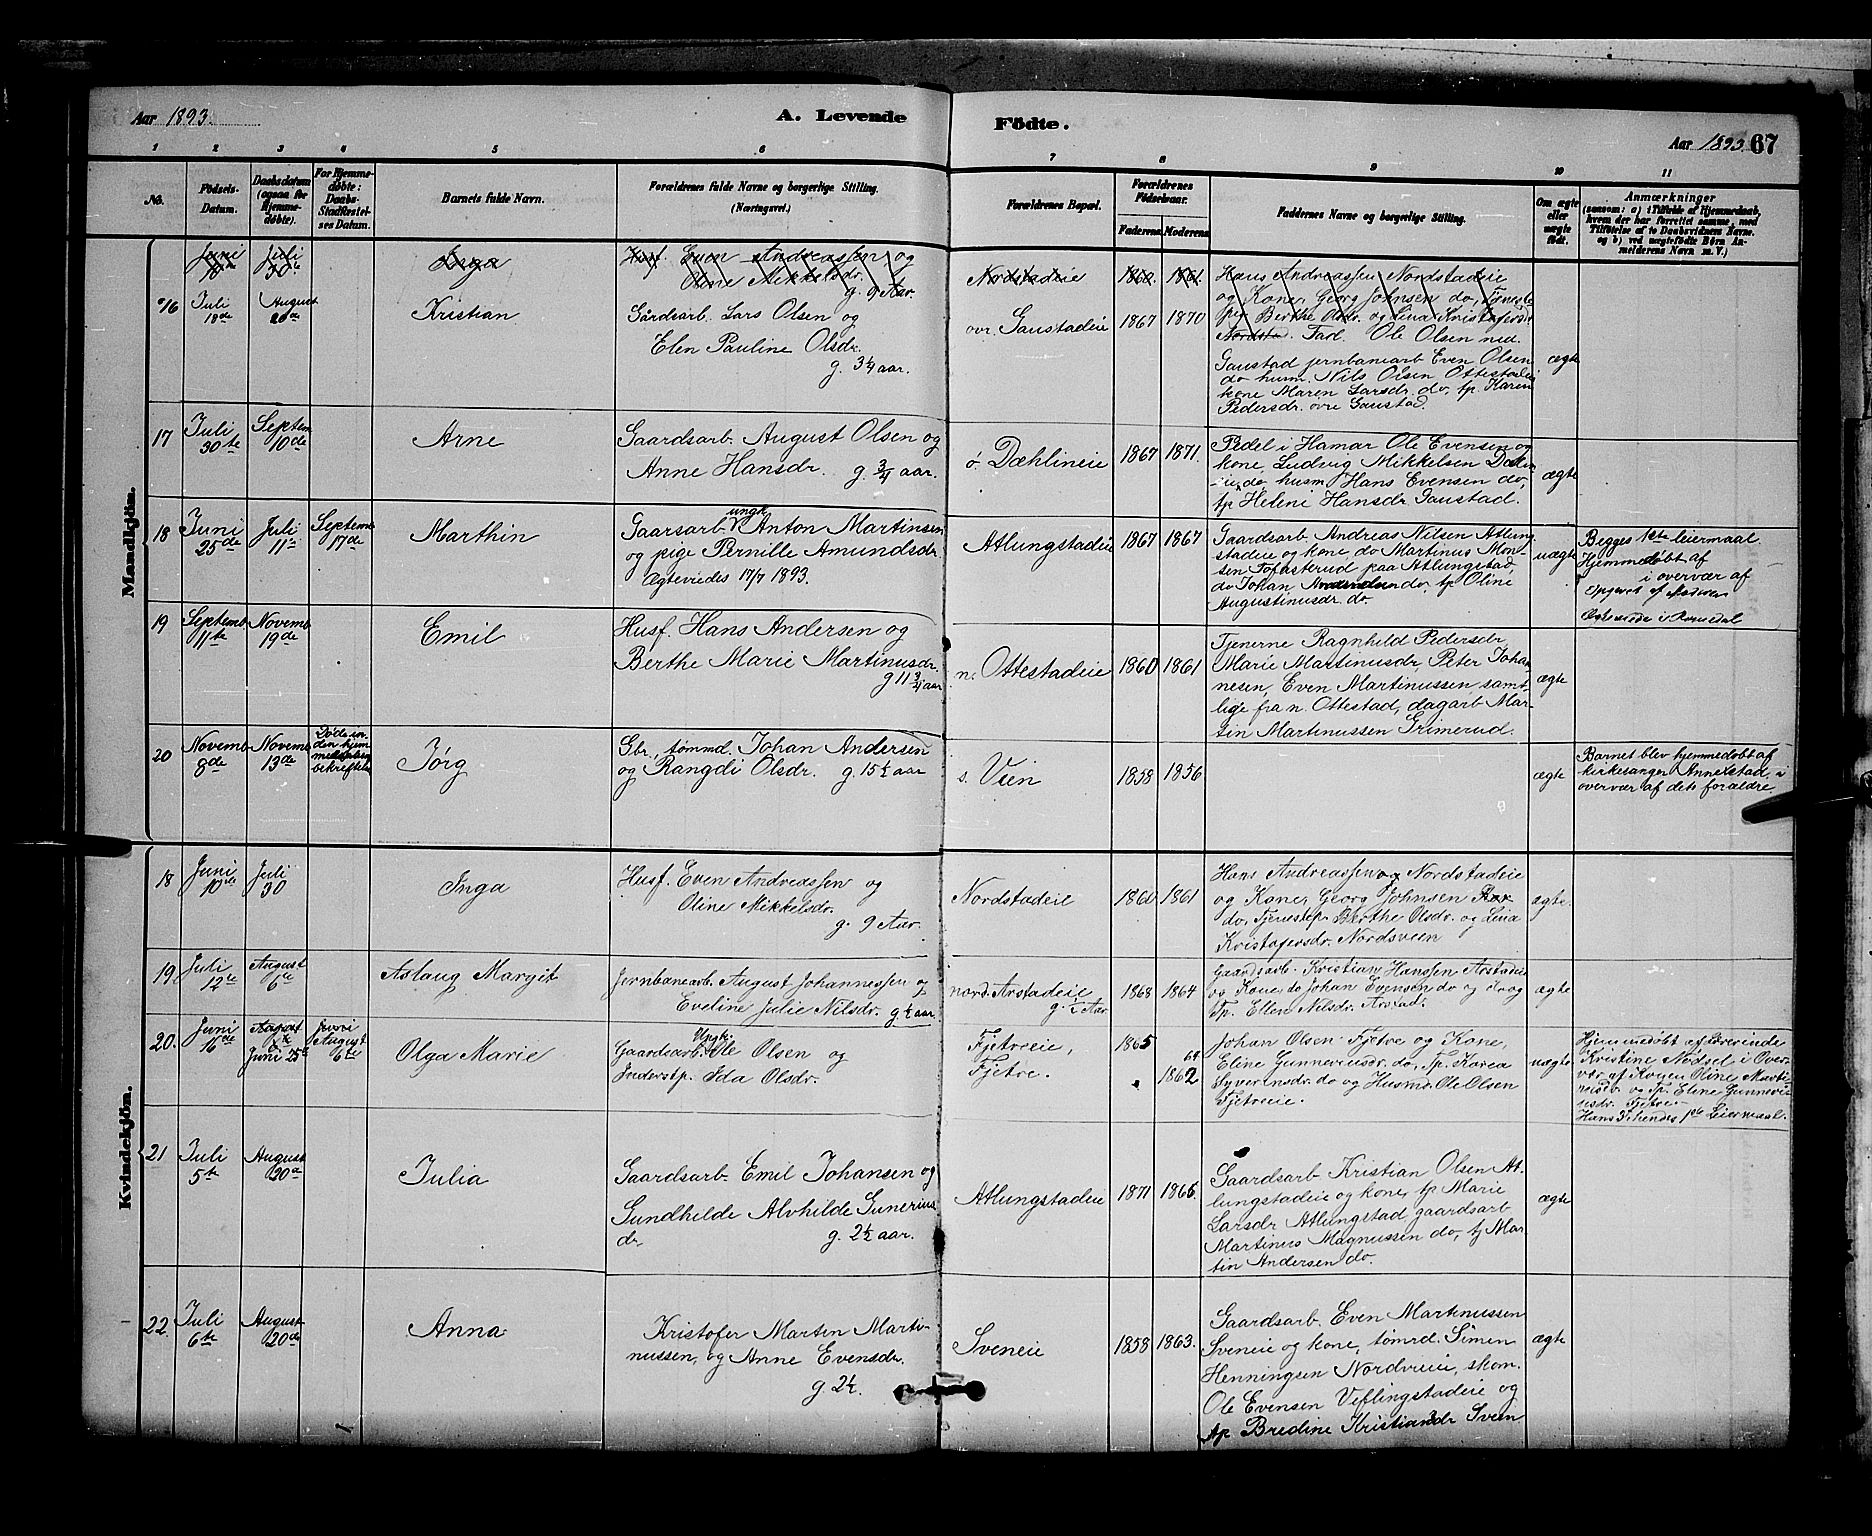 Aar 1893.
A. Levende Födte.
Aar 1893. 67
1 2 3 4 5 6 7 8 9 10 11
No.
Födsels-
Datum.
Daabsdatum
(ogsaa for
Hjemme-
døbte).
For Hjemme-
døbte:
Daabs-
Stadfæstel-
ses Datum.
Barnets fulde Navn.
Forældrenes fulde Navne og borgerlige Stilling.
(Næringsvei.)
Forældrenes Bopæl.
Forældrenes
Fødselsaar.
Faderens Moderens
Faddernes Navne og borgerlige Stilling.
Om ægte
eller
uægte
født.
Anmærkninger
(saasom: a) i Tilfælde af Hjemmedaab,
hvem der har forrettet samme, med
Tilføielse af to Daabsvidners Navne.
og b) ved uægtefødte Børn An-
melderens Navn m. V.)
Mandkjön.
Juni
10de
Juli
30te
Inga
Husf. Even Andreassen og
Oline Mikkelsdr.
g. 9 Aar.
Nordstadeie
1860. 1861.
Hans Andreassen Nordstadeie
og Kone, Georg Johnsen do, Tjeneste
pig. Berthe Olsdr. og Lina Kristofersdr
Nordstad.
16
Juli
18de
August
20de
Kristian
Gårdsarb. Lars Olsen og
Elen Pauline Olsdr.
g. 3¼ aar.
ovr. Gaustadeie
1867 1870
Farl. Ole Olsen ned.
Gaustad jernbanearb Even Olsen
do husm. Nils Olsen Ottestadeie
kone Maren Larsdr. do, tp. Karen
Pedersdr. ovre Gaustad.
ægte
17
Juli
30te
Septem
10de
Arne
Gaardsarb. August Olsen og
Anne Hansdr. g. ¾ aar.
ö. Dæhlineie
1867 1871.
Pedel i Hamar Ole Evensen og
kone, Ludvig Mikkelsen Dælin
eie, do, husm Hans Evensen do,
tp Heleni Hansdr Gaustad.
ægte
18
Juni
25de
Juli
11te
Septemb
17de
Marthin
Gaarsarb. ungk Anton Martinsen
og pige Pernille Amundsdr
Ægteviedes 17/7 1893.
Atlungstadeie
1867 1867
Gaardsarb Andreas Nilsen Atlung
stadeie og kone, do Martinus Mon-
sen Tofasterud paa Atlungstad
do Johan Amundsen do, tp Oline
Augustinusdr. do.
uægte
Begges 1ste leiermaal
Hjemmedøbt af
i overvær af
Opgivet af Moderen
i Romedal
19
Septemb
11te
Novemb
19de
Emil
Husf. Hans Andersen og
Berthe Marie Martinusdr
g 11¾ aar
n. Ottestadeie
1860 1861
Tjenerne Ragnhild Pedersdr
Marie Martinusdr Peter Johan
nesen, Even Martinussen samt-
lige fra n. Ottestad, dagarb Mar-
tin Martinussen Grimerud.
ægte
20
Novemb
8de
Novemb
13de
Døde in-
den hjem
medaaben
bekræftedes
Jörg
Gbr, tømmd. Johan Andersen
og Rangdi Olsdr. g. 15½ aar
s. Vien
1858 1856
ægte
Barnet blev hjemmedøbt af
kirkesanger Annexstad, i
overvær af dets forældre.
Kvindekjön.
18
Juni
10de
Juli
30
Inga
Husf. Even Andreassen og
Oline Mikkelsdr.
g. 9 Aar.
Nordstadeie
1860 1861
Hans Andreassen Nordstadeie
og Kone, Georg Johnsen
do, Tjenestep. Berthe Olsdr. og Lina
Kristofersdr. Nordsveen
ægte.
19
Juli
12te
August
6te
Aslaug Margit
Jernbanearb. August Johannessen og
Eveline Julie Nilsdr. g. ½ aar.
nord. Arstadeie
g. ½ Aar.
1868 1864
Gaardsarb. Kristian Hanssen Arstadeie
og Kone, do Johan Evensen do og
Tp. Ellen Nilsdr. Arstad.
ægte
20.
Juni
16de
August
Juni 25de
Juni
August
6te
Olga Marie
Gaardsarb. Ungk. Ole Olsen og
Inderstp. Ida Olsdr.
Fjetreeie,
Fjetre.
1865
1862 64
Johan Olsen Fjetre og Kone,
Eline Gunneriusdr. do, Tp. Karen
Syverinsdr. do og Husmd. Ole Olsen
Fjetreeie.
uægte
Hjemmedøbt af Lærerinde
Kristine Nødsel i Over-
vær af Konen Oline Marti-
nisdr. og Tp. Eline Gunneri-
usdr. Fjetre.
Hans 3. hendes 1ste Leiermaal.
21
Juli
5te
August
20de
Julia
Gaardsarb. Emil Johansen og
Gundhilde Alvhilde Gunerius
dr. g. 2½ aar.
Atlungstadeie
1871 1865.
Gaardsarb Kristian Olsen At-
lungstadeie og kone, tp Marie
Larsdr Atlungstad, gaardsarb
Martinus Magnussen do, tj Mar-
tin Andersen do.
ægte
22
Juli
6te
August
20de
Anna
Kristofer Marten Marti-
nussen, og Anne Evensdr.
g. 2½.
Sveneie
1858 1863.
Gaardsarb. Even Martinussen
Sveneie og kone, tømrd. Simen
Henningsen Nordvieie, skom.
Ole Evensen Veflingstadeie og
tp Bredine Kristiansdr Sveen
ægte